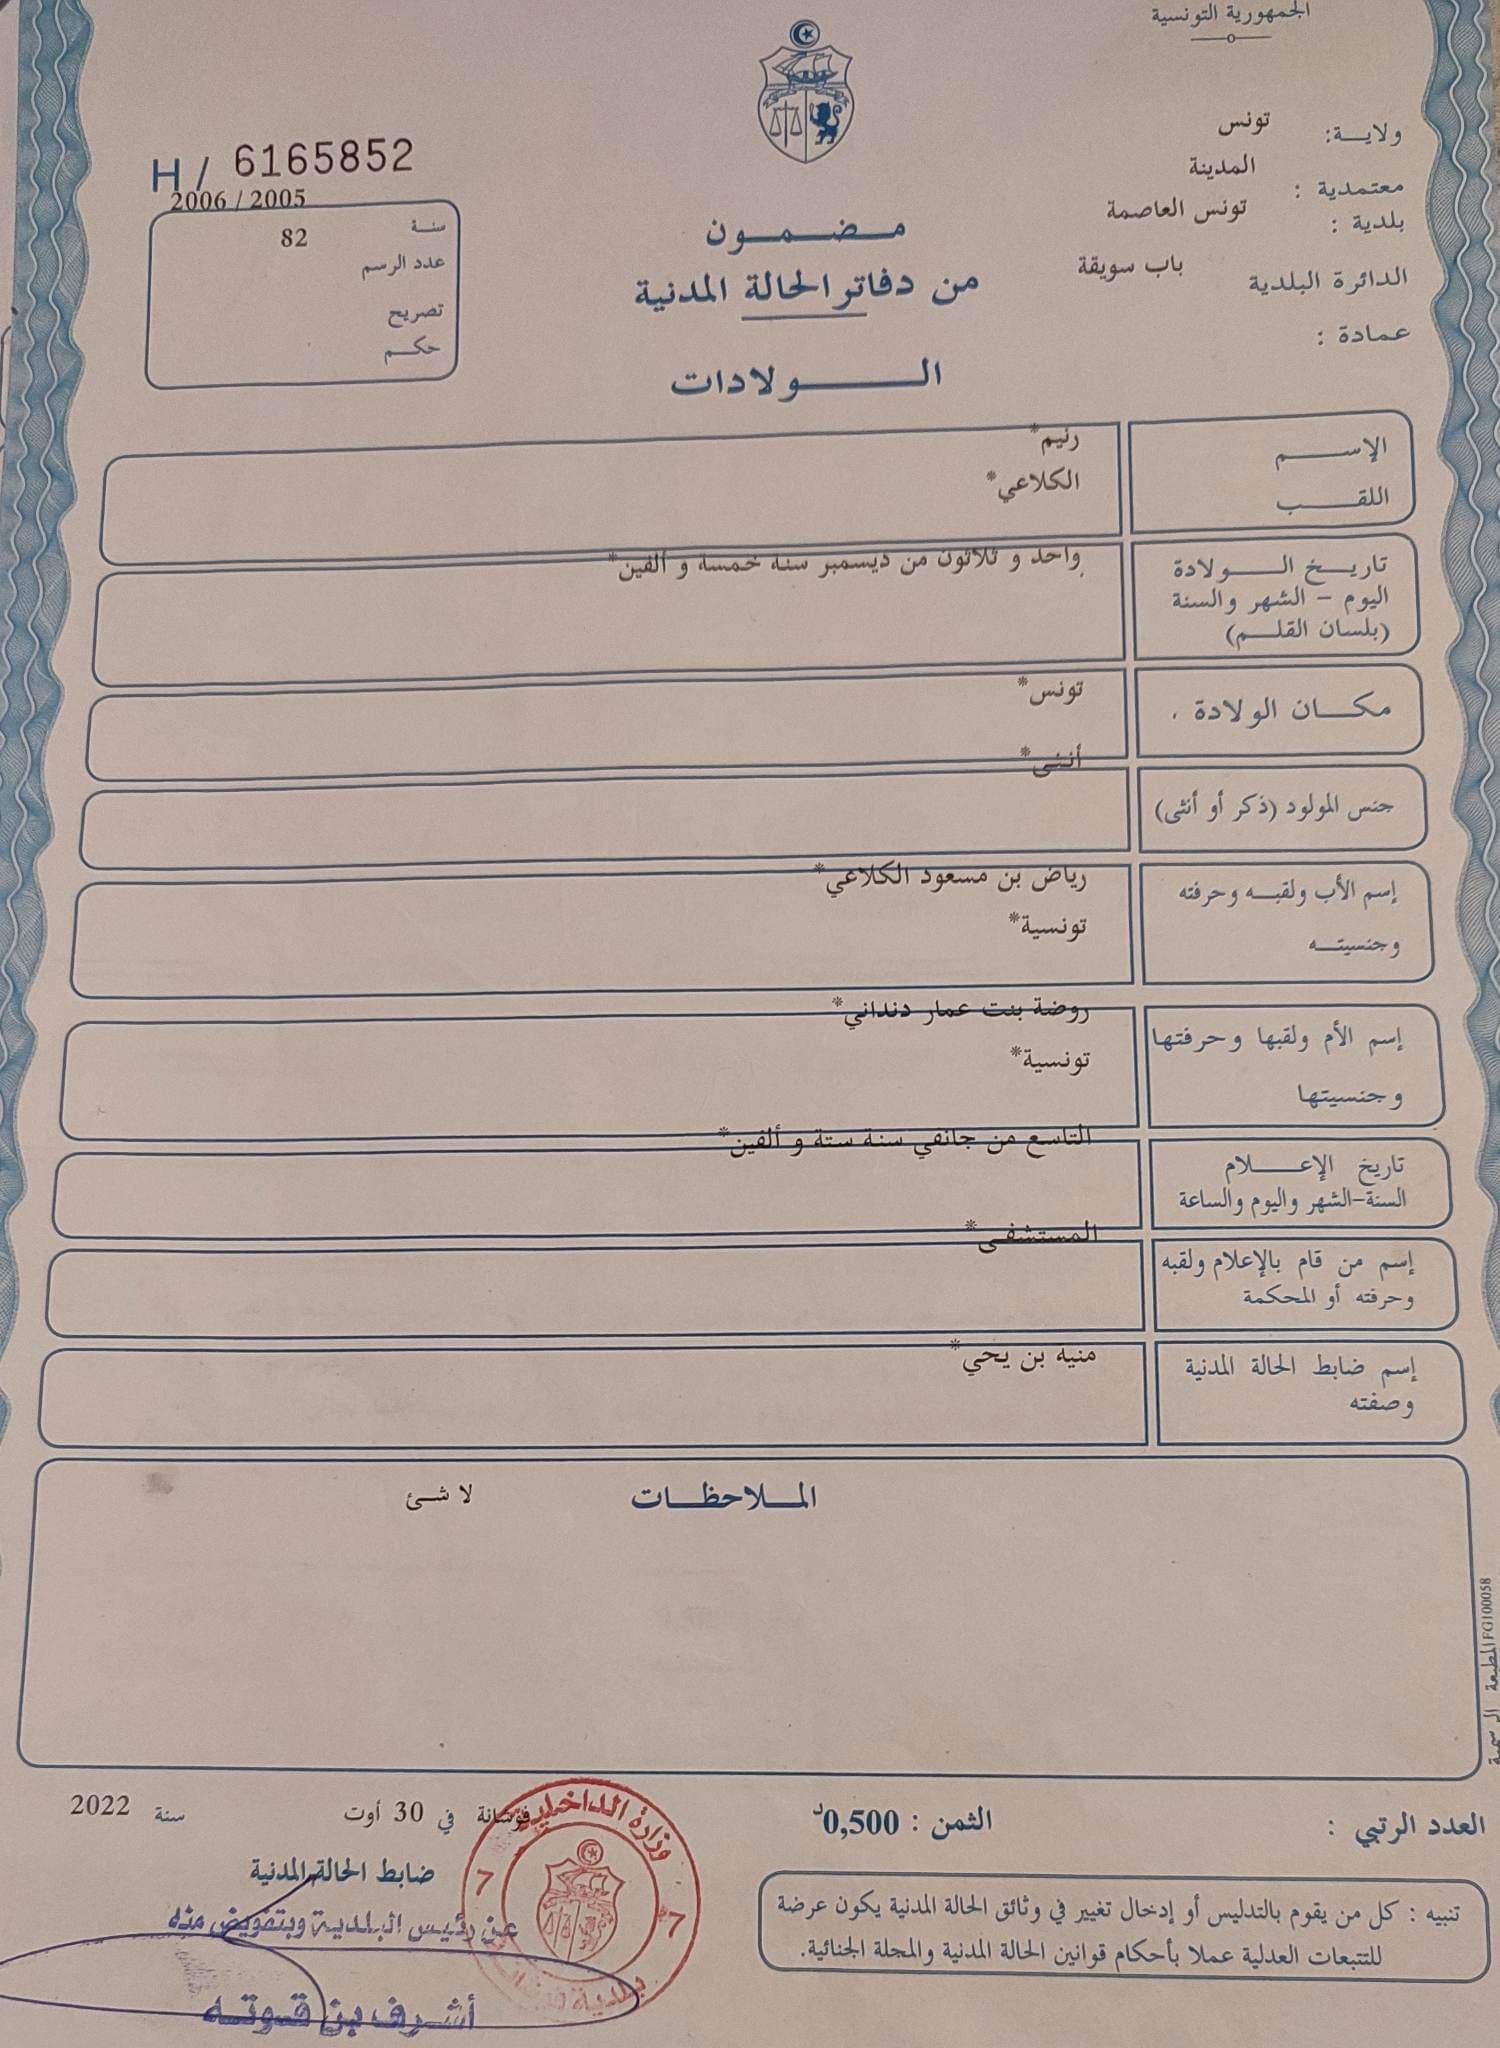 الجمهورية التونسية
ولاية: تونس
معتمدية : المدينة
بلدية : تونس العاصمة
الدائرة البلدية باب سويقة
عمادة :
H / 6165852
2006 / 2005
سنة
82
عدد الرسم
تصريح
حكم
مضمون
من دفاتر الحالة المدنية
الولادات
الإسم رنيم*
اللقب الكلاعي*
تاريخ الولادة واحد و ثلاثون من ديسمبر سنة خمسة و ألفين*
اليوم - الشهر والسنة
(بلسان القلم)
مكان الولادة . تونس*
أنثى*
جنس المولود (ذكر أو أنثى)
إسم الأب ولقبه وحرفته رياض بن مسعود الكلاعي*
وجنسيته تونسية*
روضة بنت عمار دنداني*
إسم الأم ولقبها وحرفتها
تونسية*
وجنسيتها
التاسع من جانفي سنة ستة و ألفين*
تاريخ الإعلام
السنة-الشهر واليوم والساعة
المستشفى*
إسم من قام بالإعلام ولقبه
وحرفته أو المحكمة
إسم ضابط الحالة المدنية منية بن يحي*
وصفته
الملاحظات لا شئ
المطبعة الرسمية FG100058
العدد الرتبي : الثمن : 0,500د
فوشانة في 30 أوت سنة 2022
ضابط الحالة المدنية
عن رئيس البلدية وبتفويض منه
أشرف بن قوته
وزارة الداخلية
7 7
بلدية فوشانة
تنبيه : كل من يقوم بالتدليس أو إدخال تغيير في وثائق الحالة المدنية يكون عرضة
للتتبعات العدلية عملا بأحكام قوانين الحالة المدنية والمجلة الجنائية.